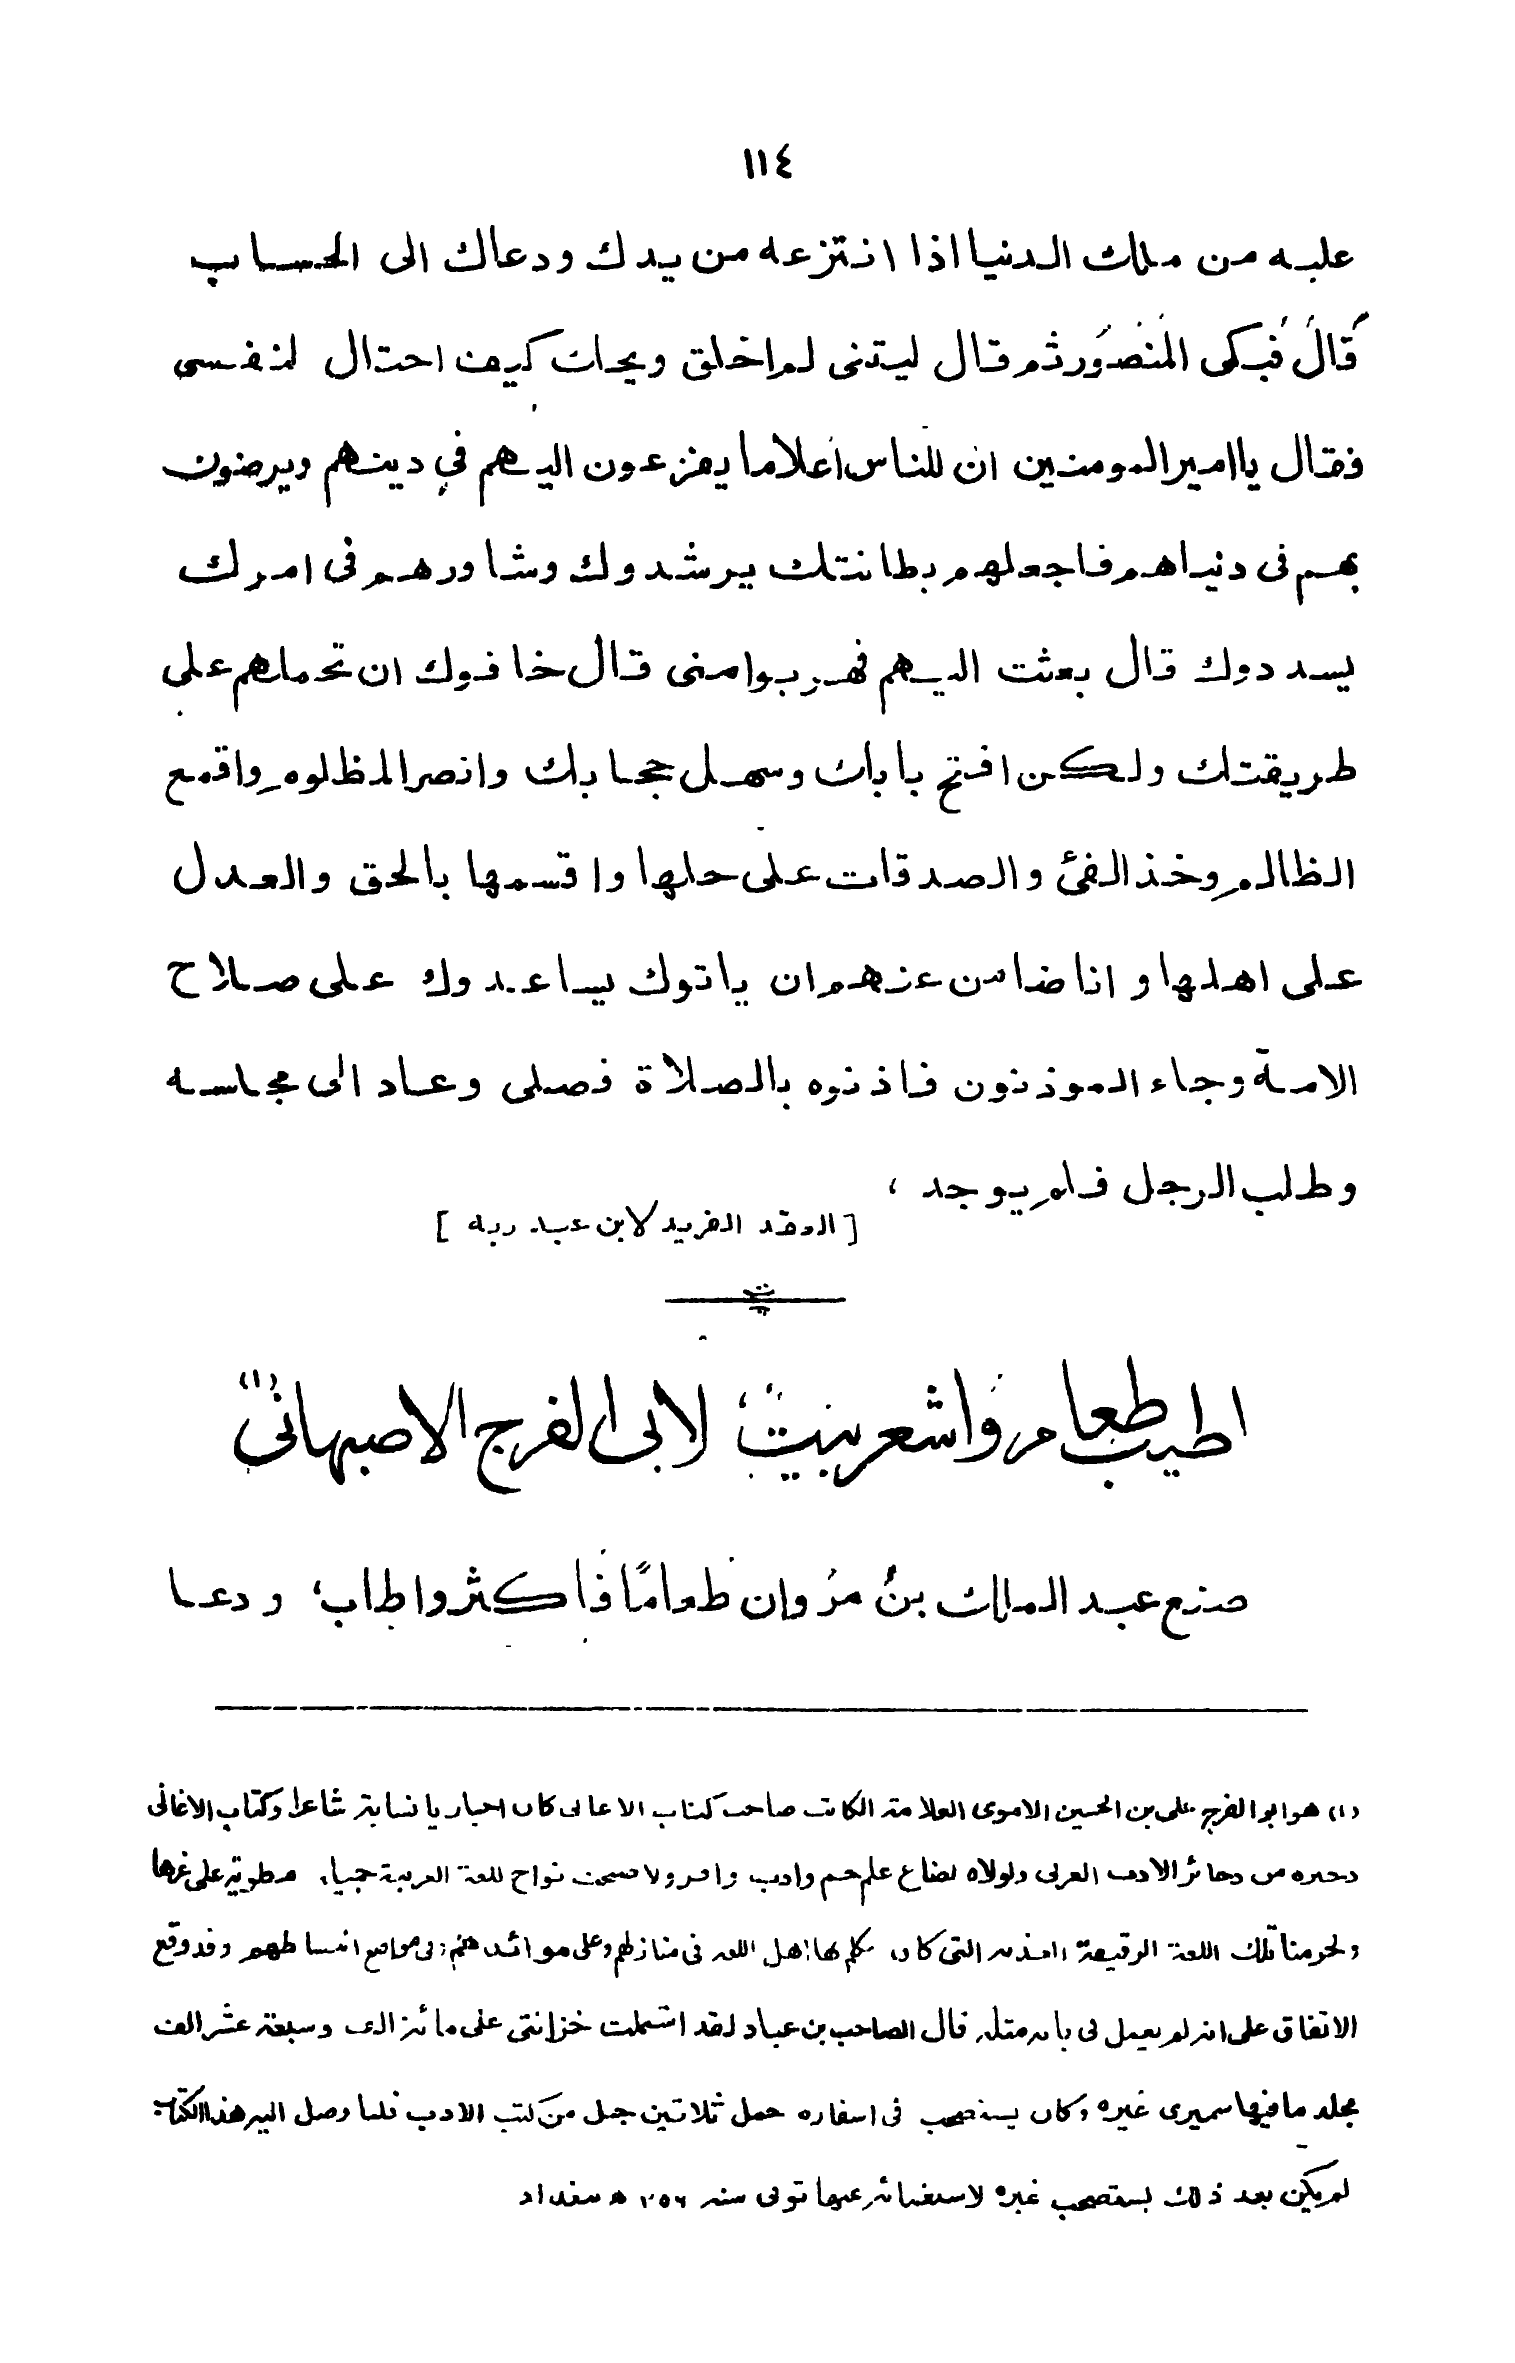 ١١٤
عليه من ملك الدنيا اذا انتزعه من يدك ودعاك الى الحساب
قَالَ فَبكى المَنصَور ثم قال ليتنى لم اخلق ويحك كيف احتال لنفسى
فقال يا امير المومنين ان للناس أعلاما يفزعون اليهم في دينهم ويرضون
بهم فى دنياهم فاجعلهم بطانتك يرشدوك وشاورهم فى امرك
يسددوك قال بعثت اليهم فهربوا منى قال خافوك ان تحملهم على
طريقتك ولكن افتح بابك وسهل حجابك وانصر المظلوم واقمع
الظالم وخذ الفئ والصدقات على حلها واقسمها بالحق والعدل
على اهلها وانا ضامن عنهم ان ياتوك يساعدوك على صلاح
الامة وجاء الموذنون فاذنوه بالصلاة فصلى وعاد الى مجلسه
وطلب الرجل فلم يوجد ،
[ العقد الفريد لابن عبد ربه ]
اطيب طعام واشعر بيت لابى الفرج الاصبهانى (١)
صنع عبد الملك بنُ مرْوان طعامًا فأكثر واطاب، ودعا
(١) هو ابو الفرج على بن الحسين الاموى العلامة الكاتب صاحب كتاب الاغانى كان اخباريا نسابة شاعرا وكتاب الاغانى
ذخيرة من ذخائر الادب العربى ولولاه لضاع علم جم وادب وافر ولاصبحت نواح للغة العربية مطوية على غرها
ولحرمنا تلك اللغة التى كان يتكلم بها اهل اللغة فى منازلهم وعلى موائدهم وفى مواضع انبساطهم وقد وقع
الاتفاق على انه لم يعمل فى بابه مثله قال الصاحب بن عباد لقد اشتملت خزانتى على مائة الف وسبعة عشر الف
مجلد ما فيها سميرى غيره وكان يستصحب فى اسفاره حمل ثلاثين جمل من كتب الادب فلما وصل اليه هذا الكتاب
لم يكن بعد ذلك يستصحب غيره لاستغنائه عنها توفى سنة ٣٥٦ ه ببغداد